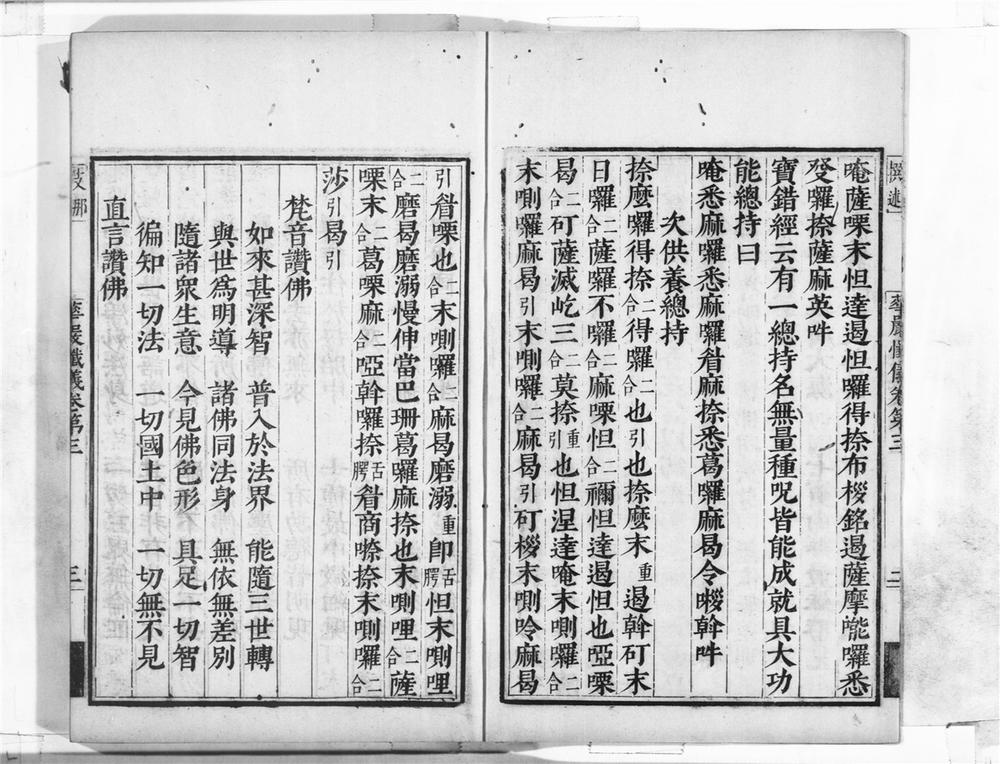 唵薩㗚末怛達遏怛囉得捺布桵銘遏薩摩能囉悉
癹囉捺薩麻英吽
寶錯經云有一總持名無量種呪皆能成就具大功
能總持曰
唵悉麻囉悉麻囉㫺麻捺悉葛囉麻曷令㗨斡吽
次供養總持
捺麼囉得捺二合得囉二合也引也捺麼末重遏斡矴末
日囉二合薩囉不囉二合麻㗚怛二合禰怛達遏怛也啞㗚
曷二合矴薩滅屹三二合莫捺重引也怛涅達唵末唎囉二合
末唎囉麻曷引末唎囉二合麻曷引矴桵末唎唥麻曷
引㫺㗚也二合末唎囉二合麻曷磨溺重卽舌齶怛末唎哩
二合磨曷磨溺慢伸當巴珊葛囉麻捺也末唎哩二合薩
㗚末二合葛㗚麻二合啞斡囉捺舌齶㫺商嚓捺末唎囉二合
莎引曷引
梵音讚佛
如來甚深智　普入於法界　能隨三世轉
與世爲明導　諸佛同法身　無依無差別
隨諸衆生意　令見佛色形　具足一切智
徧知一切法　一切國土中　一切無不見
直言讚佛
華嚴懺儀卷第三
三